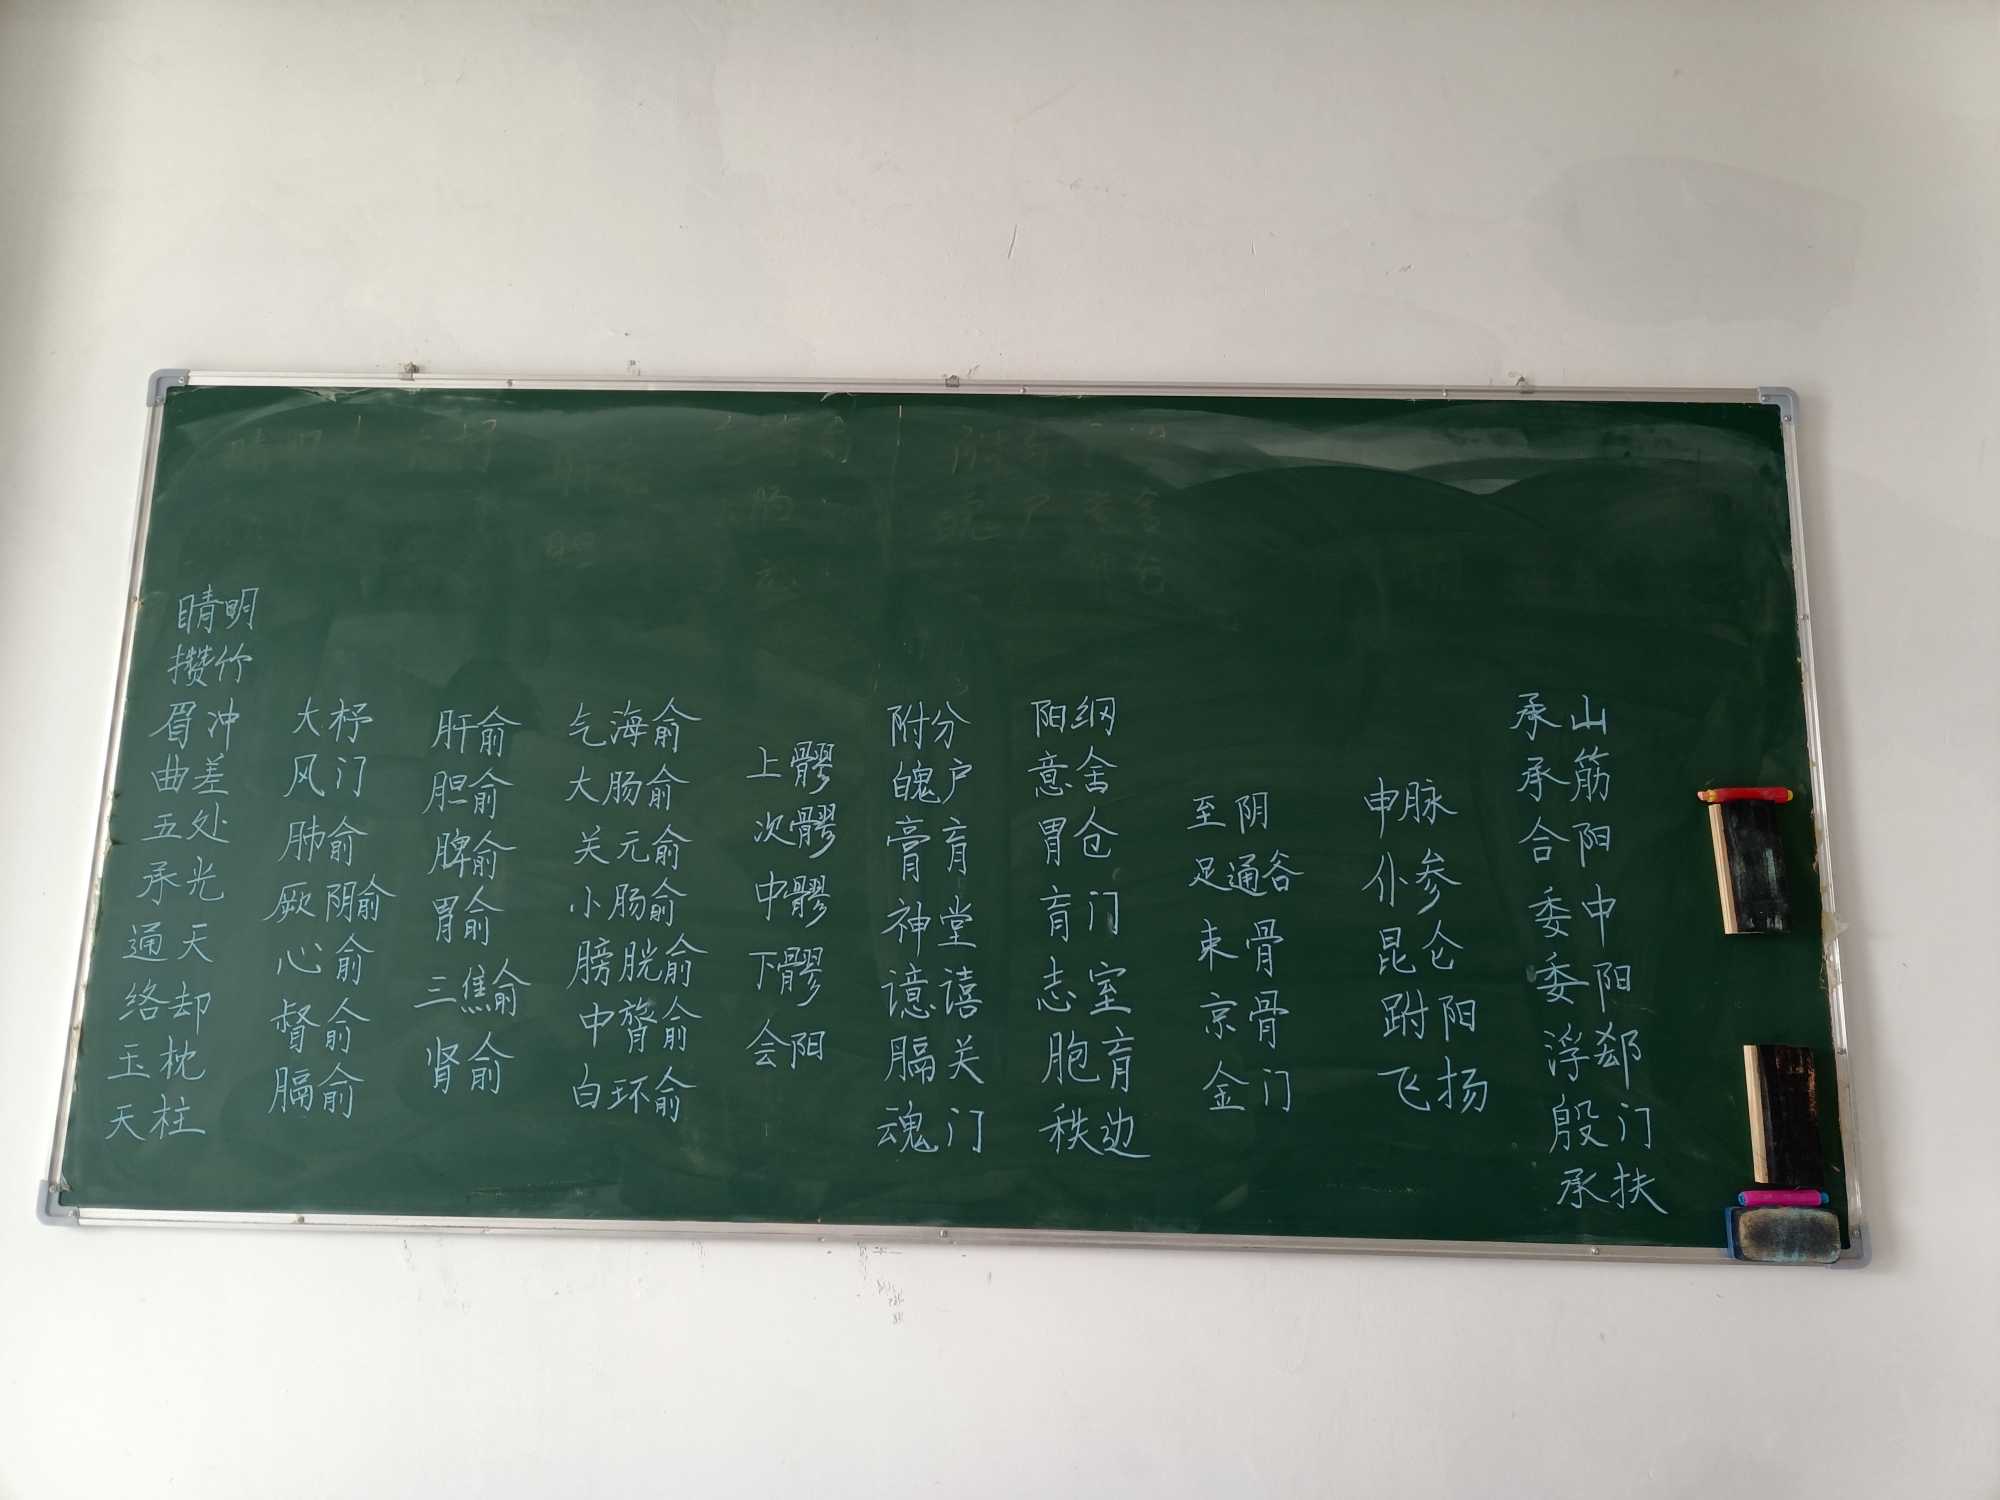 睛明
攒竹
眉冲
曲差
五处
承光
通天
络却
玉枕
天柱
大杼
风门
肺俞
厥阴俞
心俞
督俞
膈俞
肝俞
胆俞
脾俞
胃俞
三焦俞
肾俞
气海俞
大肠俞
关元俞
小肠俞
膀胱俞
中膂俞
白环俞
上髎
次髎
中髎
下髎
会阳
附分
魄户
膏育
神堂
譩譆
膈关
魂门
阳纲
意舍
胃仓
育门
志室
胞育
秩边
至阴
足通谷
束骨
京骨
金门
申脉
仆参
昆仑
跗阳
飞扬
承山
承筋
合阳
委中
委阳
浮郄
殷门
承扶